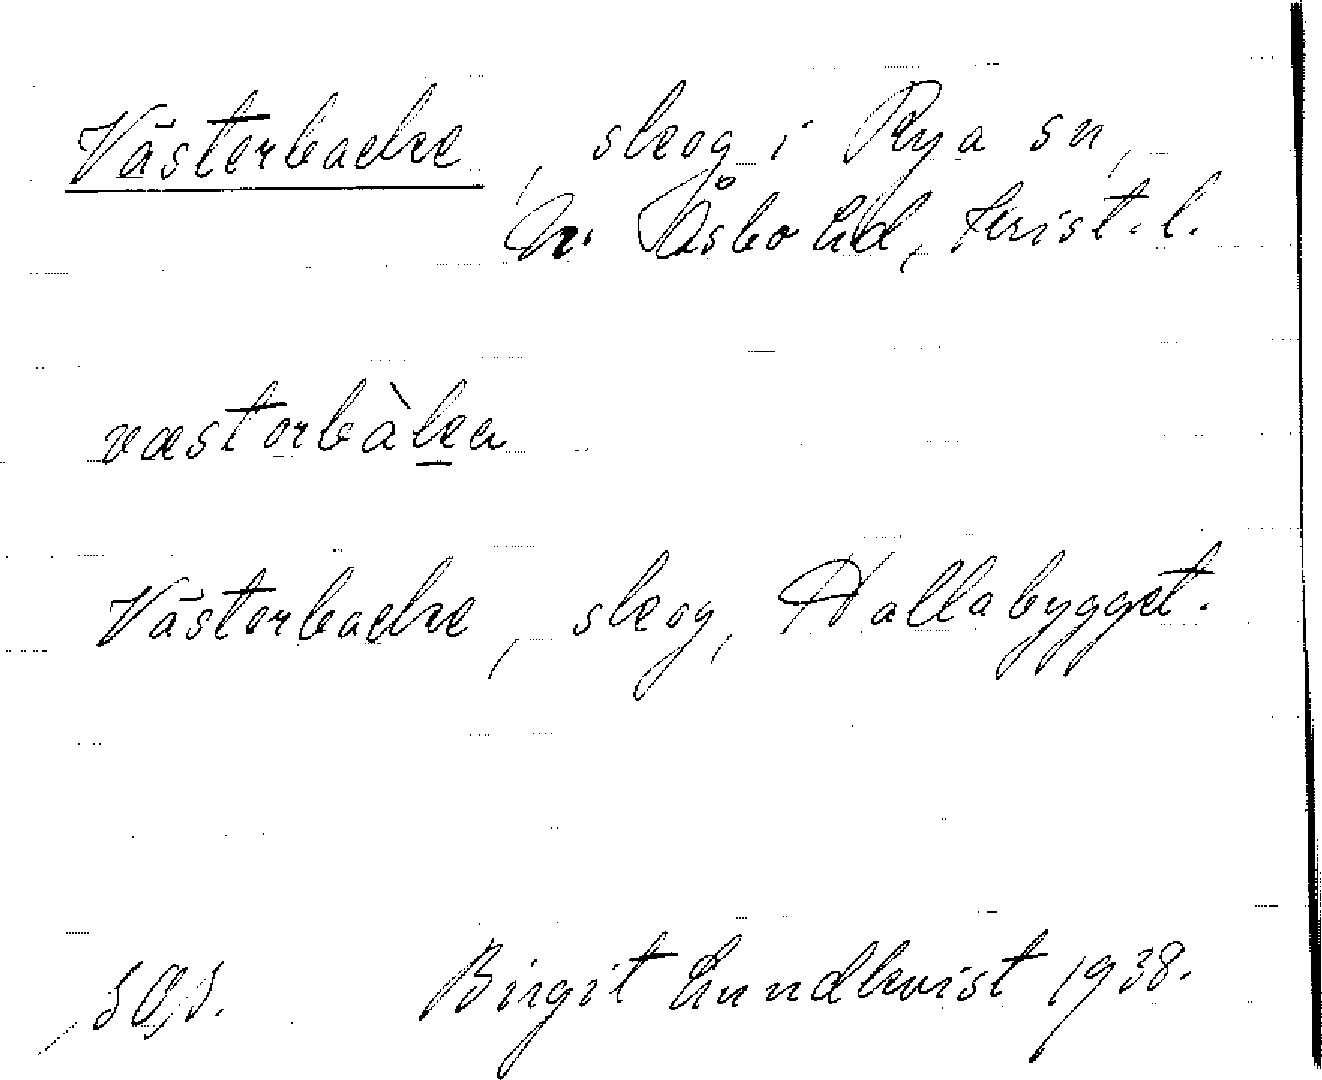 Västerbacke, skog i Rya sn,
N. Åsbo hd, Krist. l.
västorbàka
Västerbacke, skog, Hallabygget.
Birgit Lundkvist 1938.